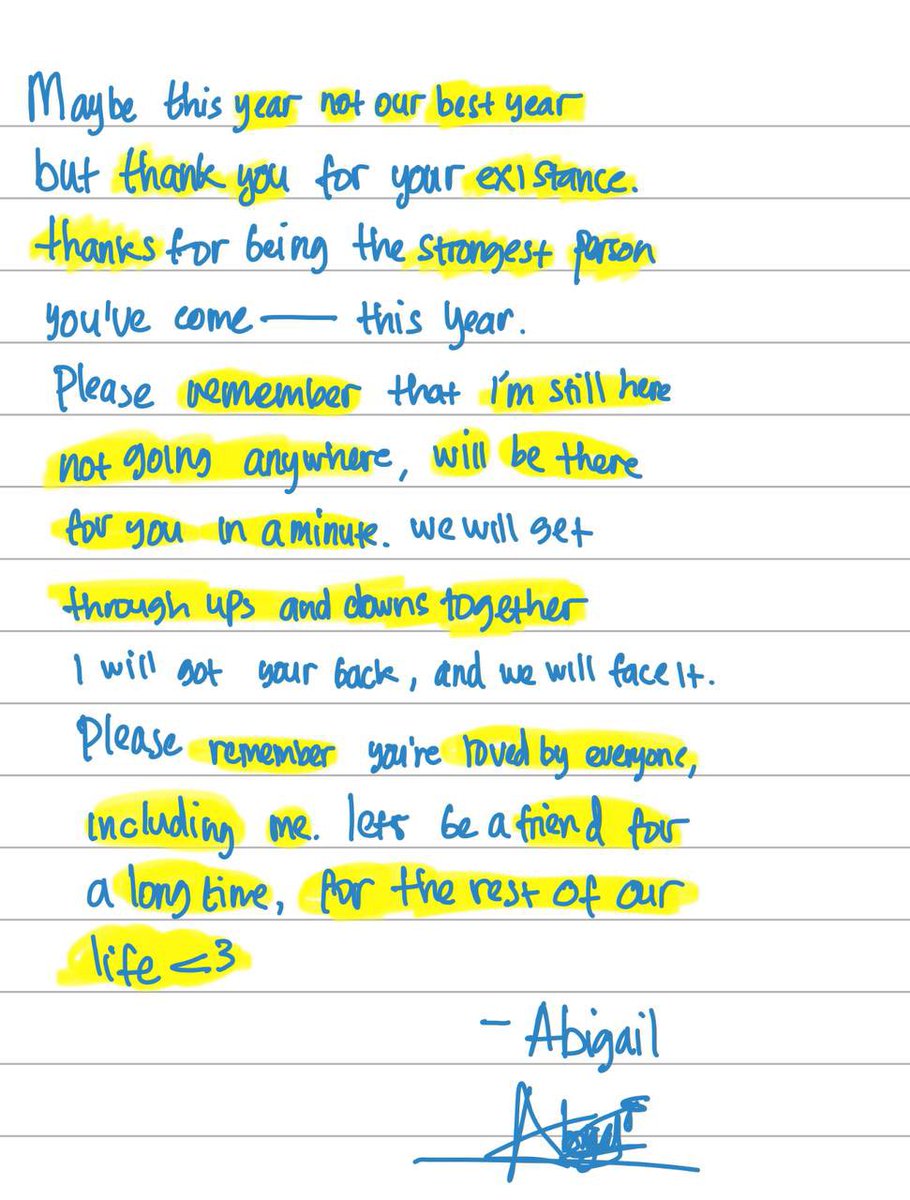 Maybe this year not our best year
but thank you for your existance.
thanks for being the strongest person
you've come — this year.
Please remember that I'm still here
not going anywhere, will be there
for you in a minute. we will get
through ups and downs together
I will got your back, and we will face it.
Please remember you're loved by everyone,
including me. lets be a friend for
a long time, for the rest of our
life <3
- Abigail
Abigail